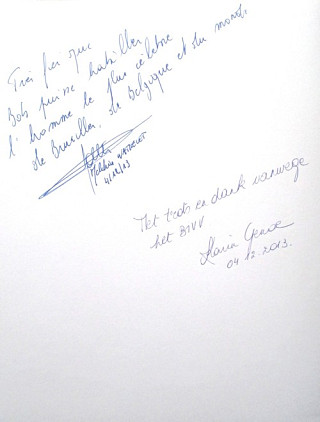 Très fier que
Bob puisse habiller
l'homme le plus célèbre
de Bruxelles, de Belgique et du monde.
4/12/13
Met trots en dank vanwege
het BIVV
04.12.2013.